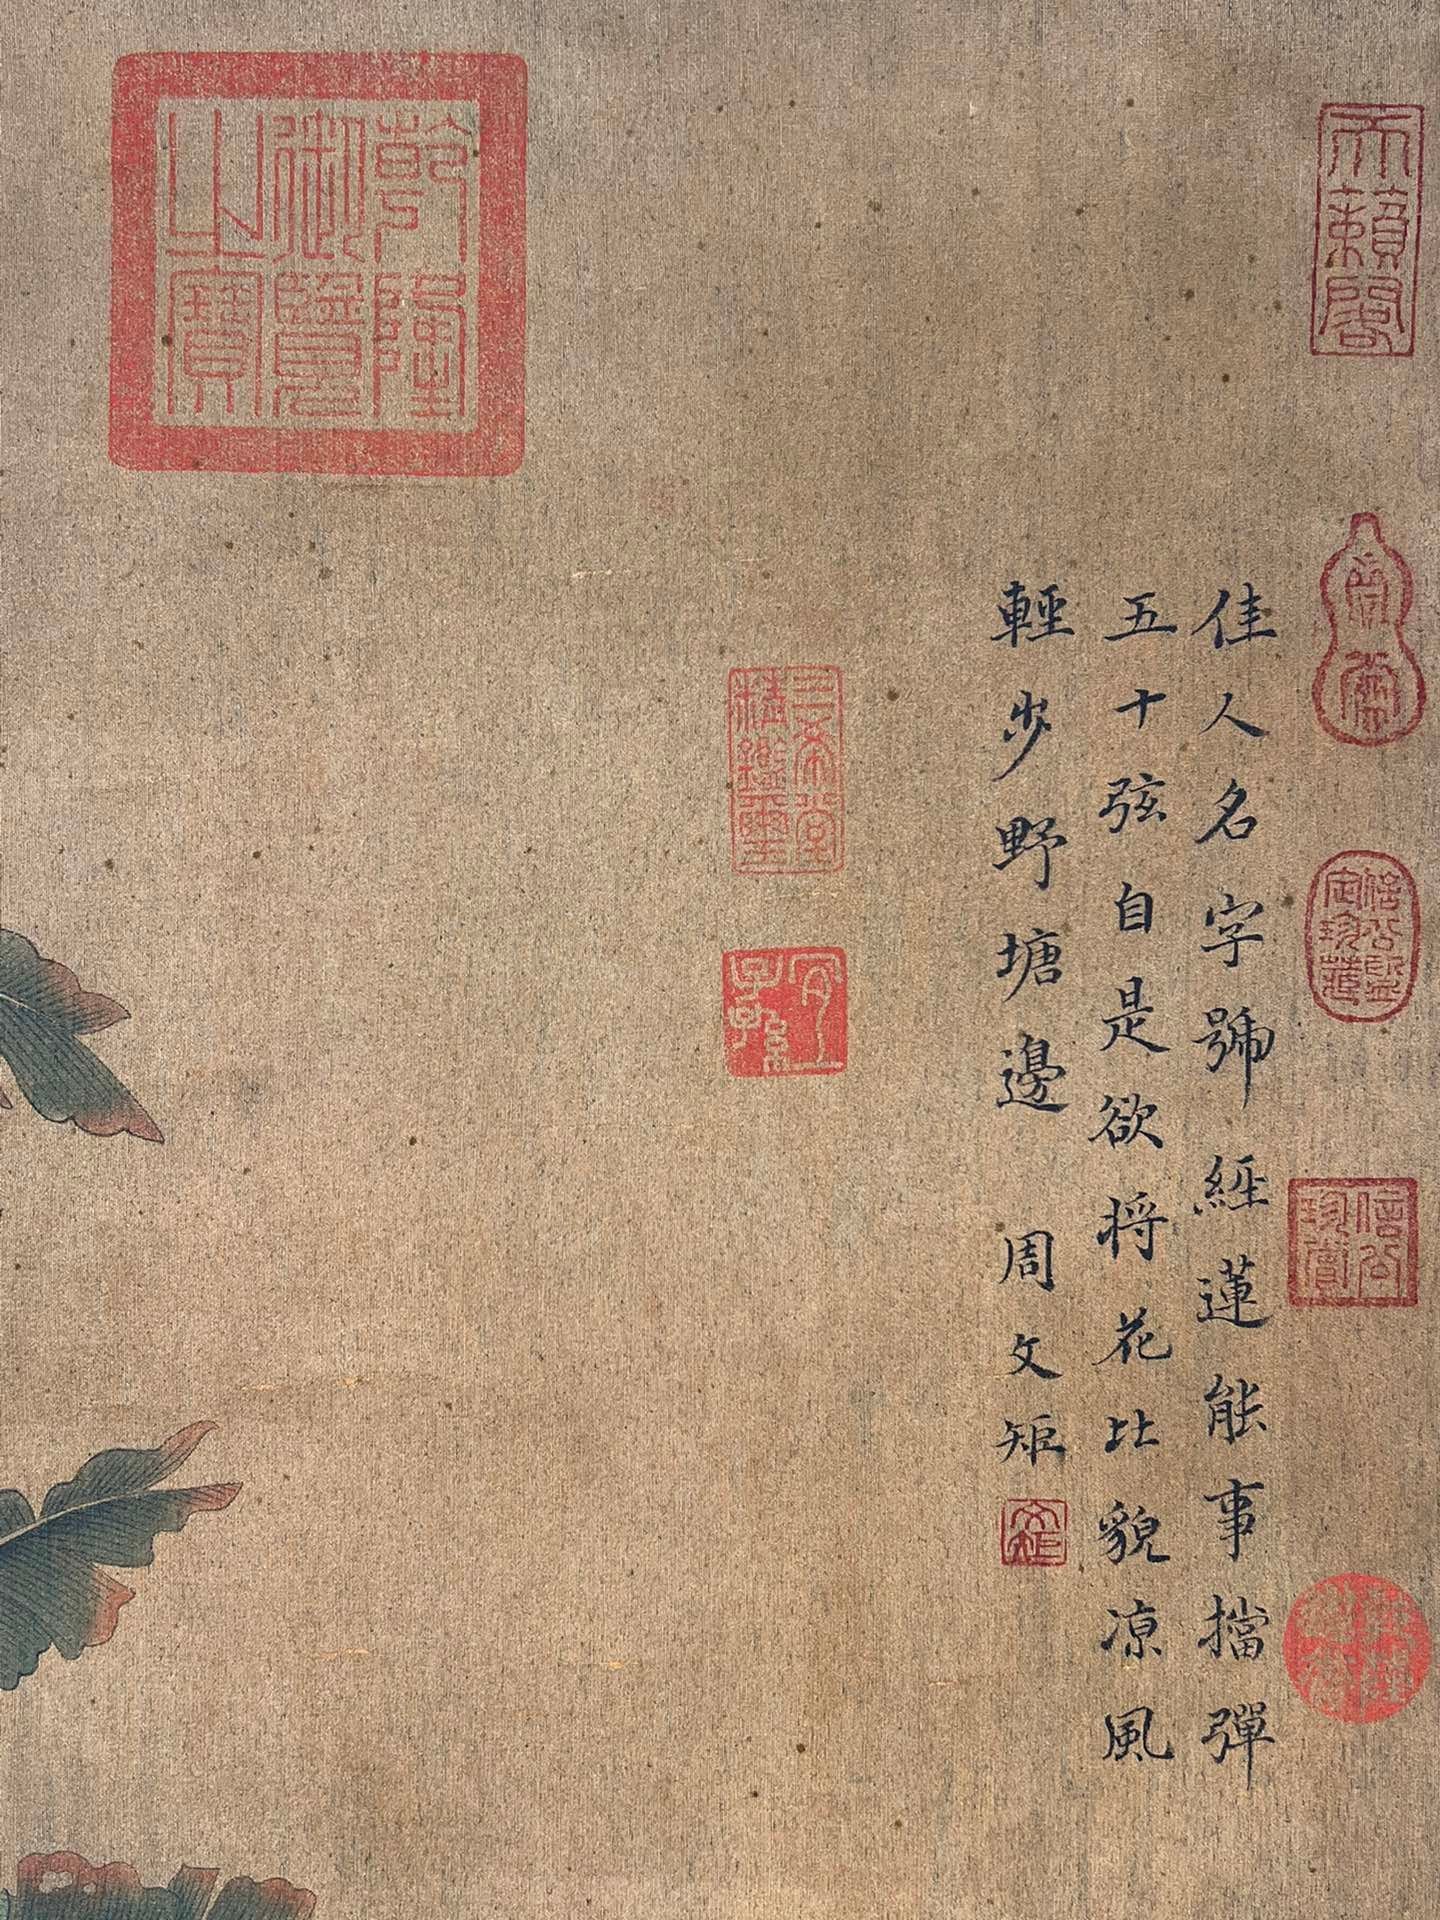 佳人名字號經蓮能事擋彈
五十弦自是欲將花比貌涼風
輕步野塘邊 周文矩
文矩
乾隆御覽之寶
三希堂精鑑璽
宜子孫
天籟閣
信公珍賞